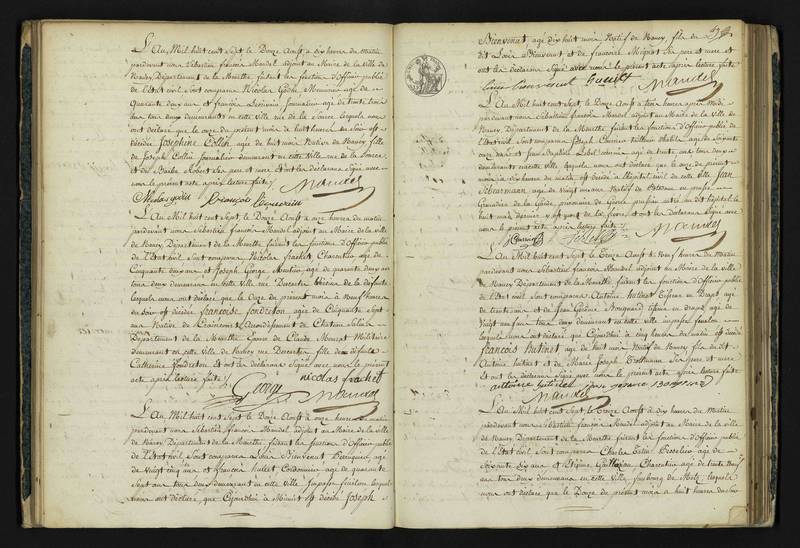 L'An Mil huit cent Sept le Douze Aoust a dix heures du matin
pardevant nous Sébastien françois Mandel adjoint au Maire de la Ville
de Nancy, Département de la Meurthe faisant les fonctions d'Officier public
de l'Etat civil Sont comparus Nicolas Godié Menuisier agé de
Quarante deux ans et françois journalier agé de trente trois
ans tous deux demeurants en cette Ville rue de la Source lesquels nous
ont déclaré que le onze du présent mois de huit heures du Soir est
décédée Josephine Collin agée de huit mois Native de Nancy fille
de Joseph Collin journalier demeurant en cette Ville rue de la Source
et de Barbe Robert Ses pere et mere et ont les déclarans Signé avec
nous le présent acte après lecture faite
Nicolas godié françois Mandel
L'An Mil huit cent Sept le Douze Aoust a onze heures du matin
pardevant nous Sébastien françois Mandel adjoint au Maire de la Ville
de Nancy, Département de la Meurthe faisant les fonctions d'Officier public
de l'Etat civil Sont comparus Nicolas frachet Charpentier agé de
Cinquante deux ans et Joseph George agé de quarante deux ans
tous deux demeurans en cette ville rue de la défunte
lesquels nous ont déclaré que le Onze du présent mois a Neuf heures
du soir est décédée francoise fondreton agée de Cinquante Sept
ans Native de Arrondissement de Chateau Salins
Département de la Meurthe de Claude Militaire
demeurant en cette Ville de Nancy rue fille des défunts
Catherine fondreton et ont les déclarans Signé avec nous le présent
acte après lecture faite
George nicolas frachet
Mandel
L'An Mil huit cent Sept le Douze Aoust a onze heures du matin
pardevant nous Sébastien françois Mandel adjoint au Maire de la Ville
de Nancy Département de la Meurthe faisant les fonctions d'Officier public
de l'Etat civil Sont comparus Louis Bienvenut Perruquier agé
de Vingt cinq ans et francois huillet Cordonnier agé de quarante
Sept ans tous deux demeurant en cette Ville lesquels
nous ont déclaré que Cejourdhui a Minuit est décédé Joseph
Bienvenut, agé dix huit mois Natif de Nancy, fils de
dit Louis Bienvenut et de francoise Mignot Ses pere et mere et
ont les déclarans Signé avec nous le présent acte après lecture faite
Louis bienvenut Mandel
L'An Mil huit cent Sept, le Douze Aoust a trois heures après midi
pardevant nous Sébastien françois Mandel adjoint au Maire de la Ville
de Nancy, Département de la Meurthe faisant les fonctions d'Officier public de
l'Etat civil Sont comparus Joseph agé de Soixante
onze ans et Jean Baptiste agé de trente ans tous deux
demeurants en cette ville, lesquels nous ont déclaré que le onze du présent
mois a dix heures du matin est décédé a l'hôpital civil de cette ville Jean
Schearmann agé de vingt neuf ans Natif de
Grenadier de la Garde, prisonnier de Guerre prussien entré au dit hôpital le
huit mai dernier y est mort de la fievre, et ont les déclarans Signé avec
nous le présent acte après lecture faite
Mandel
L'An Mil huit cent Sept, le Treize Aoust a Neuf heures du Matin
pardevant nous Sébastien françois Mandel adjoint au Maire de la Ville
de Nancy Département de la Meurthe faisant les fonctions d'Officier public
de l'Etat civil Sont comparus Antoine hutinet Tisseran en Draps, agé
de trente ans et Jean Gérome Tisseran en draps agé de
Vingt neuf ans tous deux demeurant en cette ville
lesquels nous ont déclaré que Cejourdhui a cinq heures du matin est décédé
francois hutinet agé de huit mois Natif de Nancy fils du dit
Antoine hutinet et de Marie Joseph Ses pere et mere
et ont les déclarans Signé avec nous le présent acte après lecture faite
antoine hutinet jean gerome
Mandel
L'An Mil huit cent Sept, le Treize Aoust a dix heures du Matin
pardevant nous Sébastien françois Mandel adjoint au Maire de la Ville
de Nancy Département de la Meurthe faisant les fonctions d'Officier public
de l'Etat civil Sont comparus Charles agé de
Soixante dix ans et Etienne Charpentier agé de trente Neuf
ans tous deux demeurans en cette Ville, faubourg de Metz, lesquels
nous ont déclaré que le Douze du présent mois a huit heures du Soir